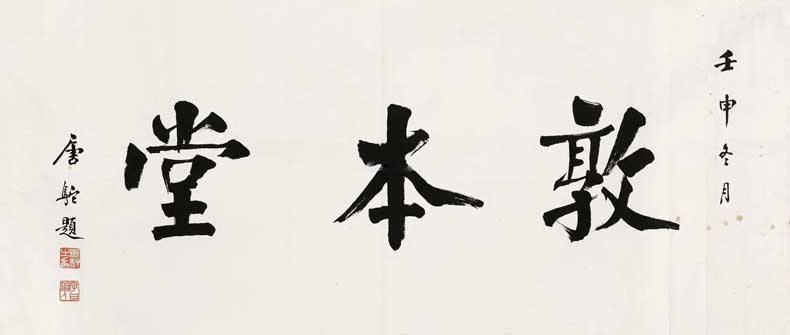 壬申冬月
敦本堂
唐駝題